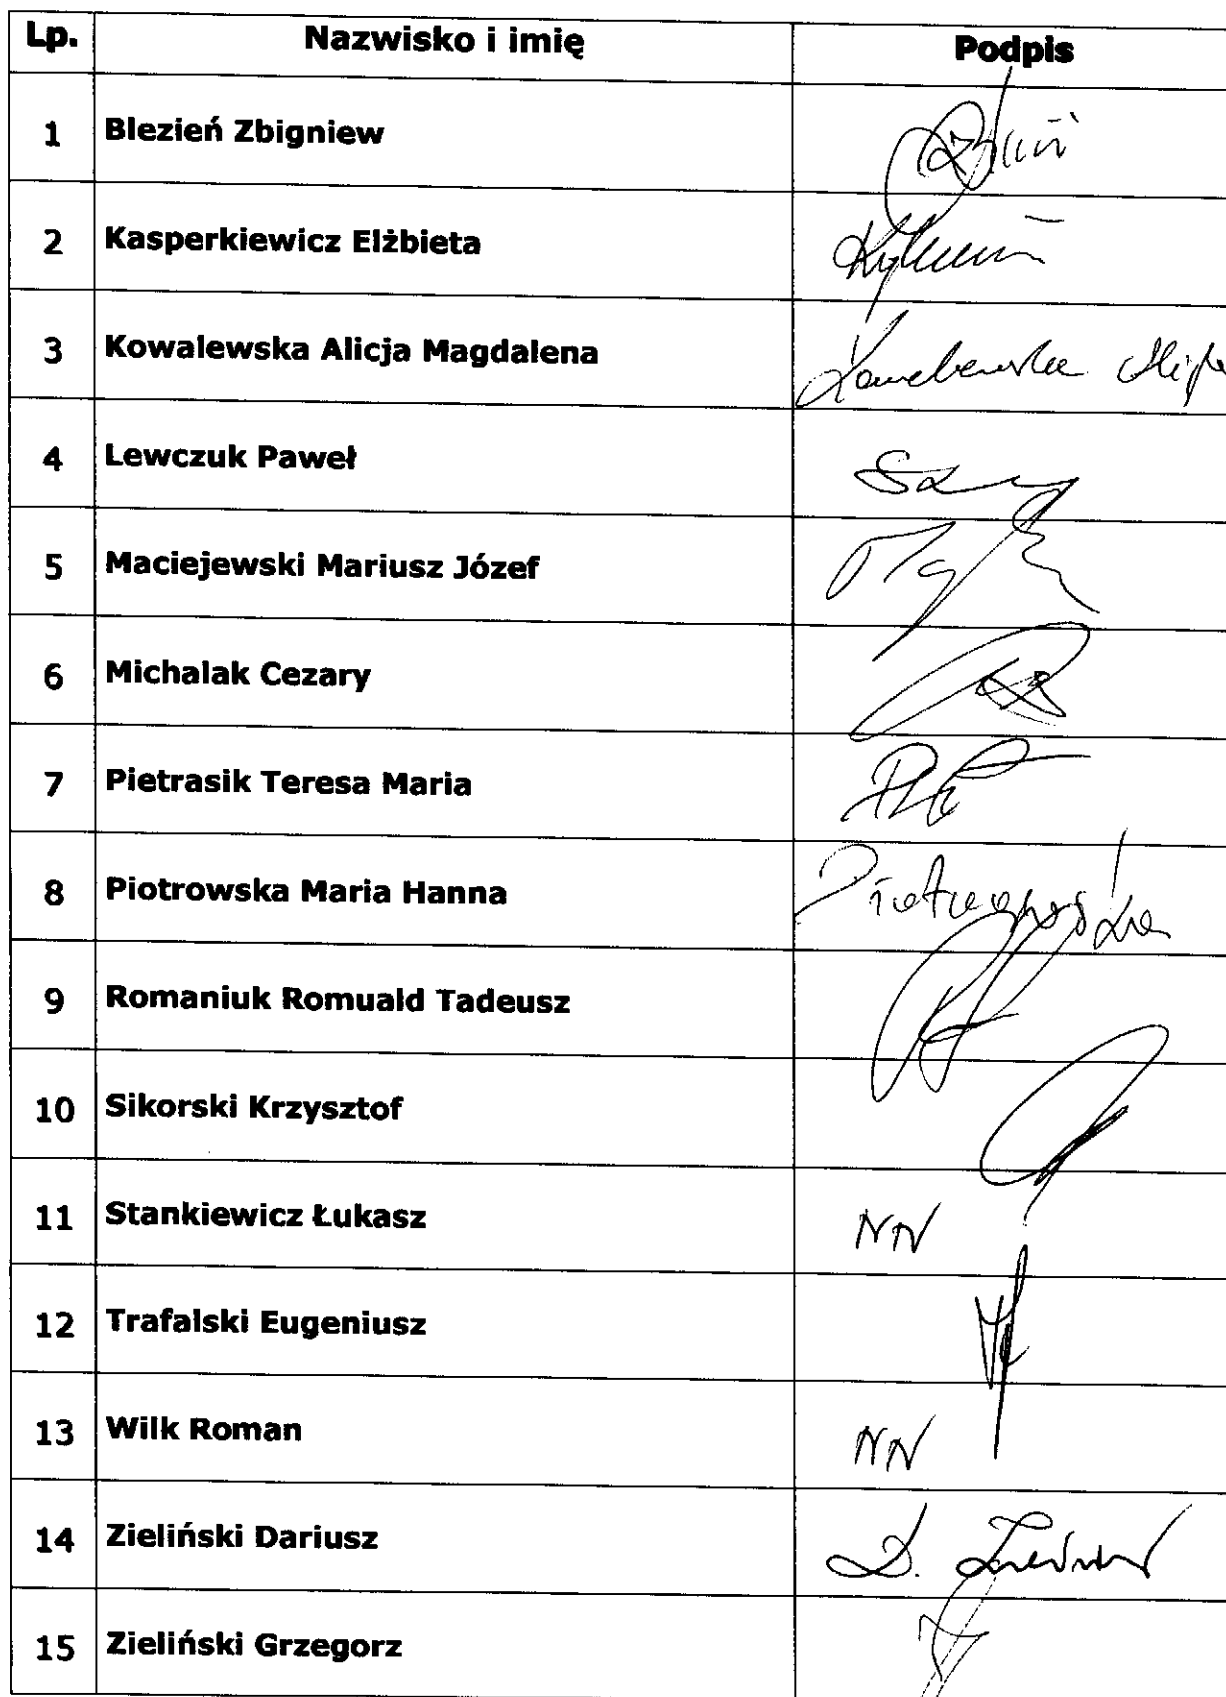 Lp. Nazwisko i imię Podpis
1 Blezień Zbigniew
2 Kasperkiewicz Elżbieta
3 Kowalewska Alicja Magdalena
4 Lewczuk Paweł
5 Maciejewski Mariusz Józef
6 Michalak Cezary
7 Pietrasik Teresa Maria
8 Piotrowska Maria Hanna Piotrowska
9 Romaniuk Romuald Tadeusz
10 Sikorski Krzysztof
11 Stankiewicz Łukasz NN
12 Trafalski Eugeniusz
13 Wilk Roman NN
14 Zieliński Dariusz D.
15 Zieliński Grzegorz